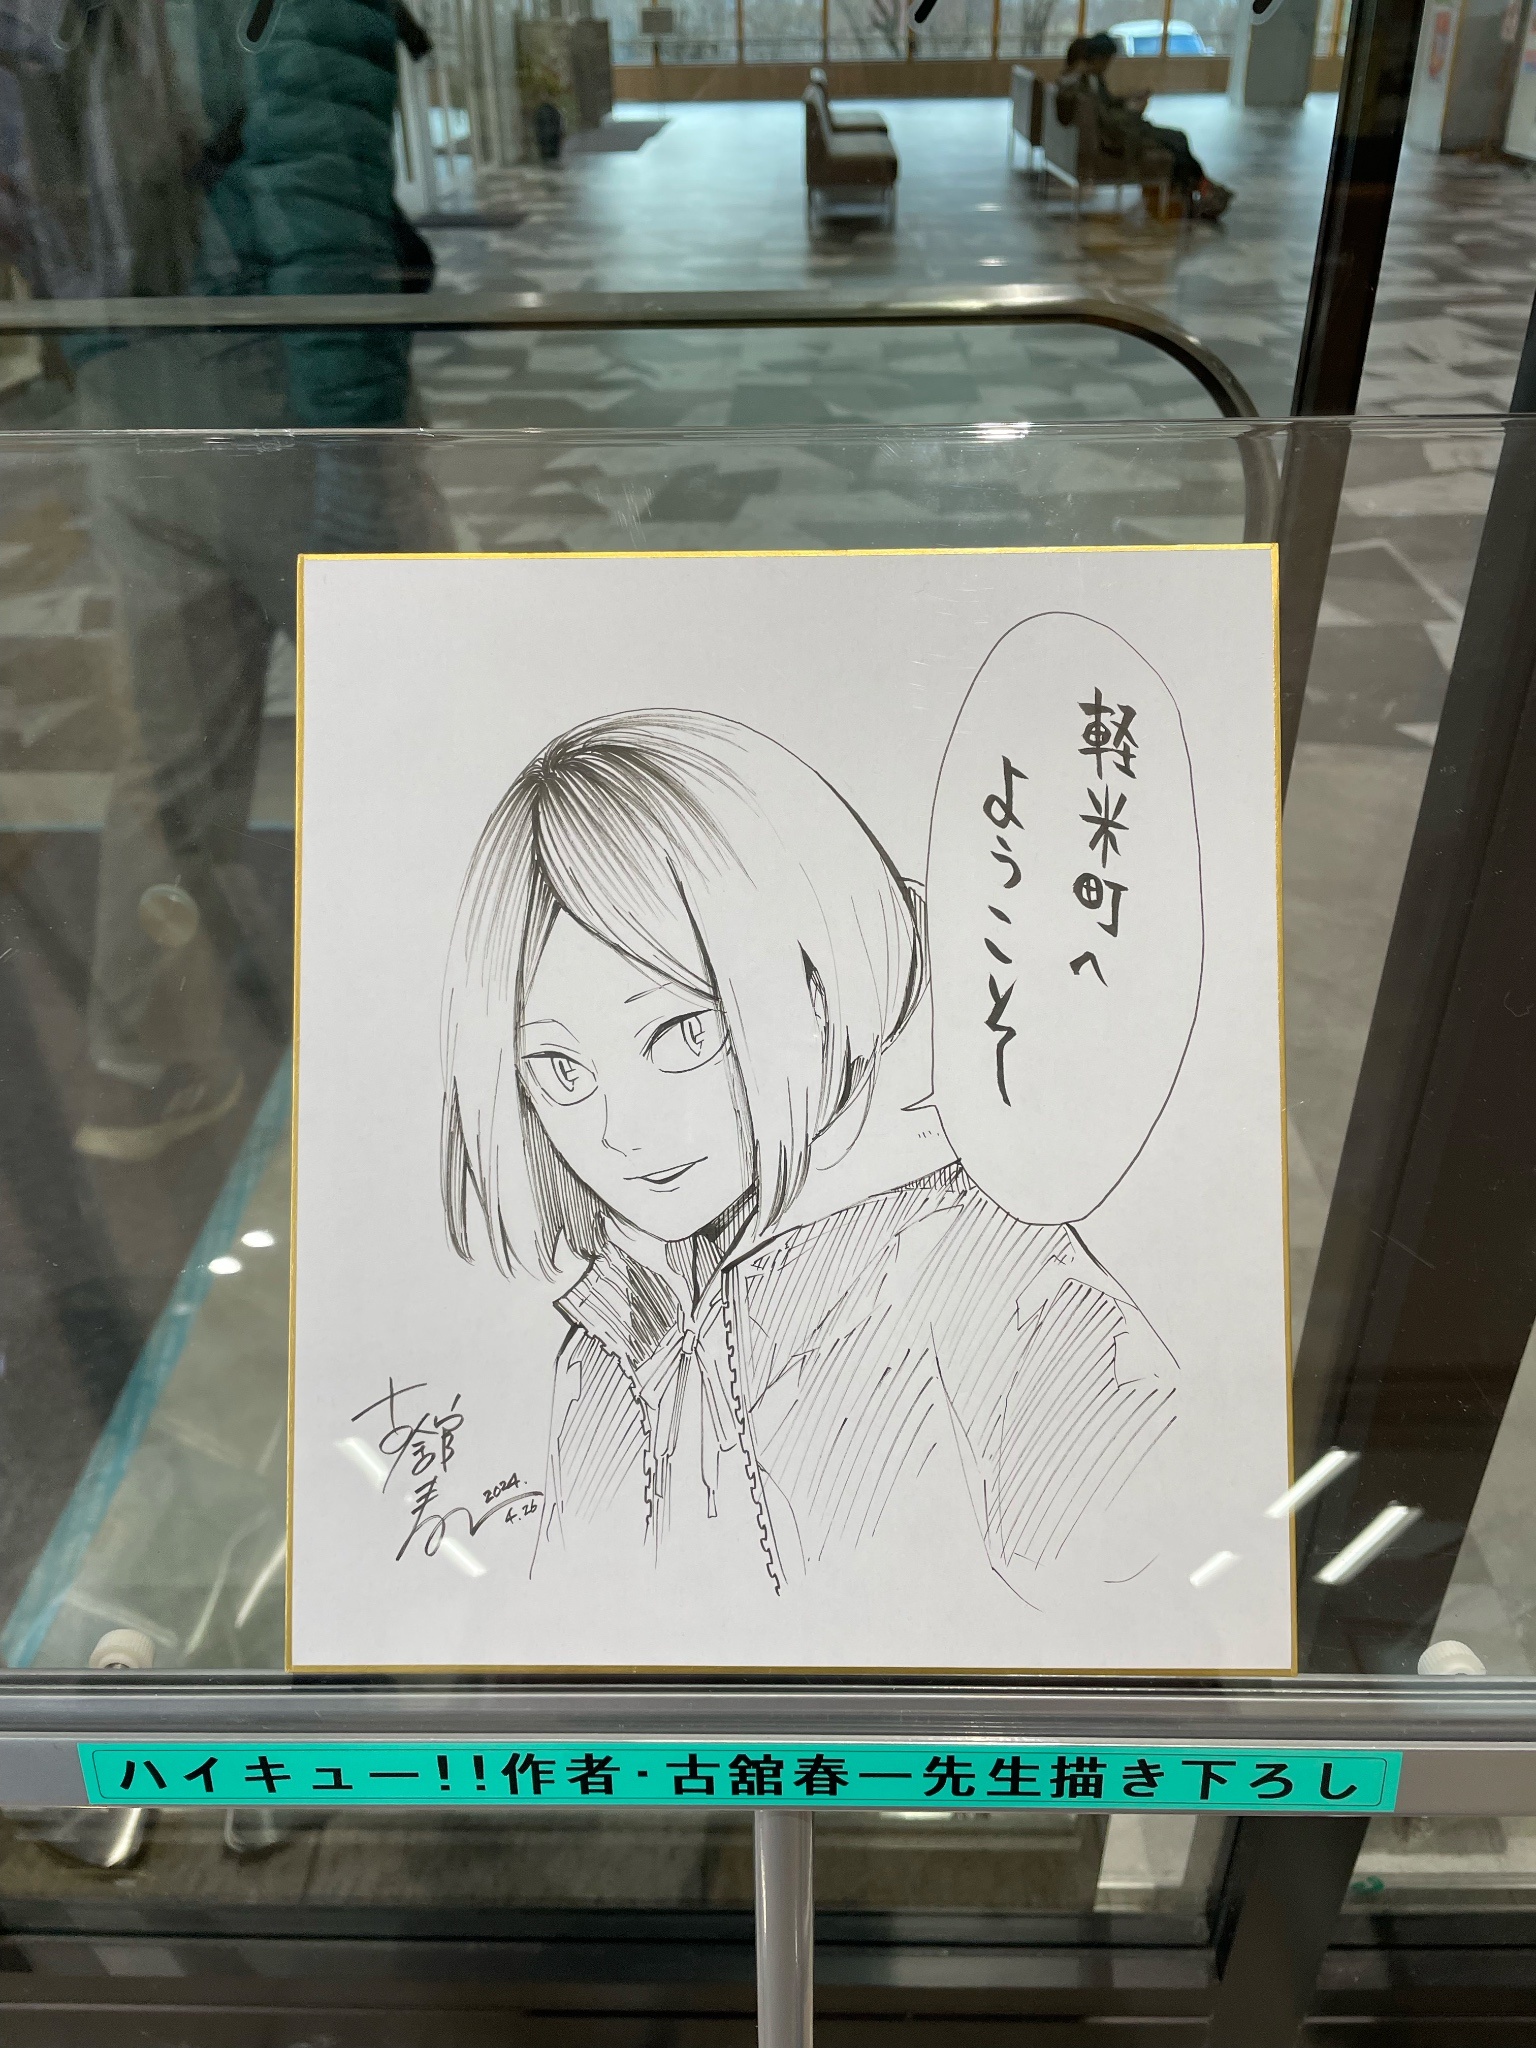 軽米町へ
ようこそ
古舘春一
2024.
4.26
ハイキュー!!作者・古舘春一先生描き下ろし